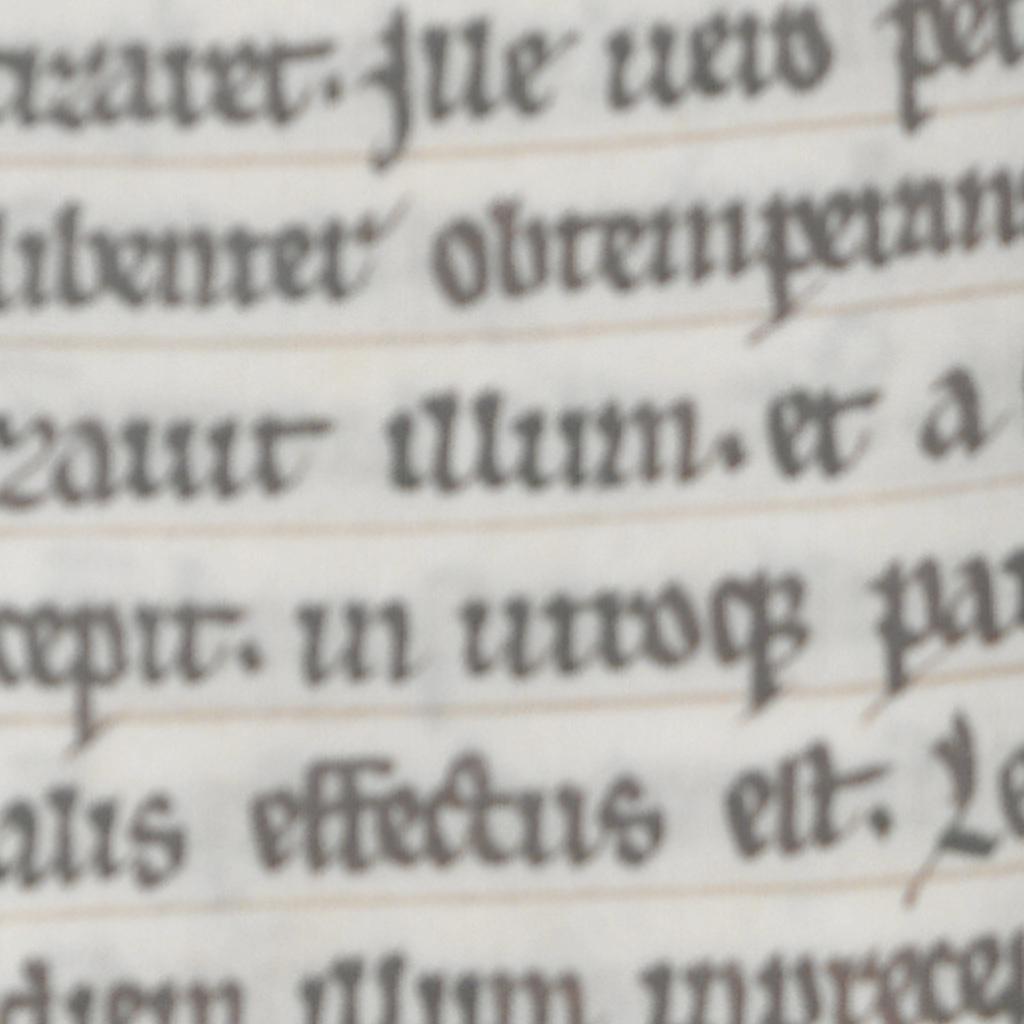 azaret. Ille uero pet
libenter obtemperan
zauit illum. et a
cepit. in utroq; par
alis effectus est. Le
diem illum